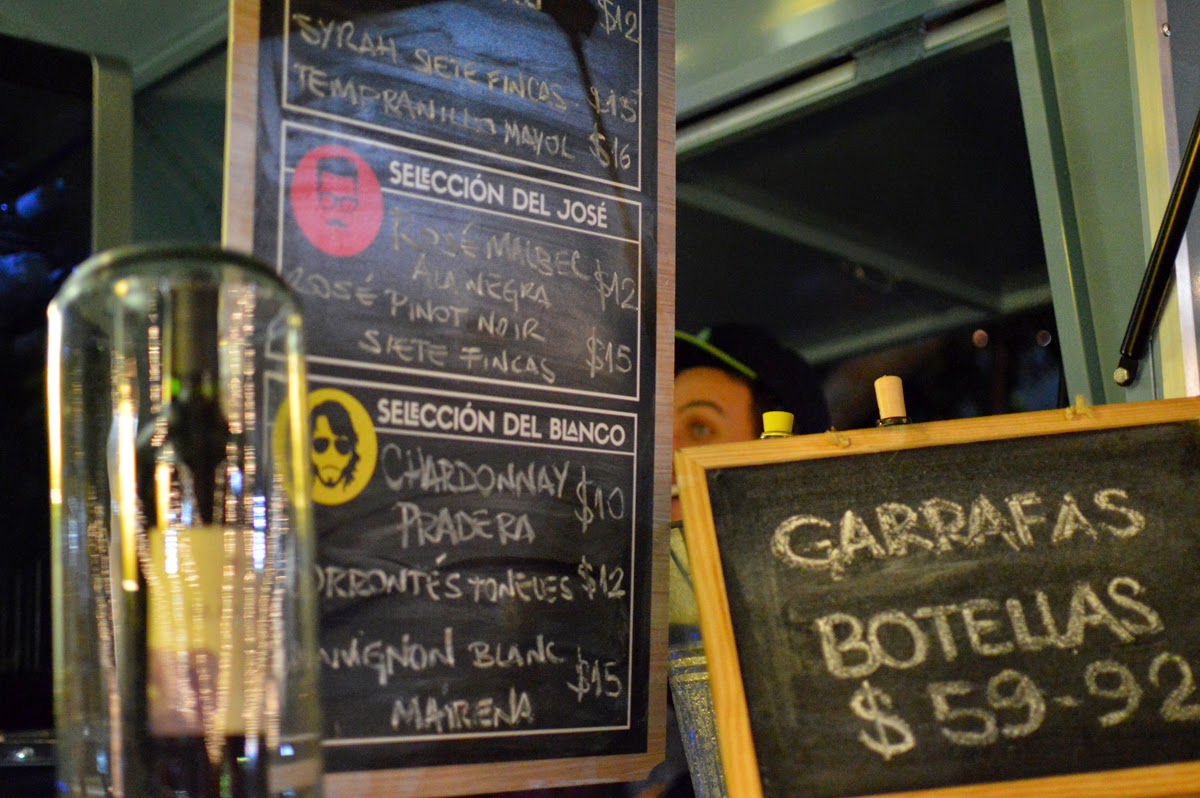 $12
SYRAH SIETE FINCAS $15
TEMPRANILLO MAYOL $16
SELECCIÓN DEL JOSÉ
ROSÉ MALBEC
ALA NEGRA $12
ROSÉ PINOT NOIR
SIETE FINCAS $15
SELECCIÓN DEL BLANCO
CHARDONNAY
PRADERA $10
TORRONTÉS TONELES $12
SAUVIGNON BLANC
MAIRENA $15
GARRAFAS
BOTELLAS
$59-92